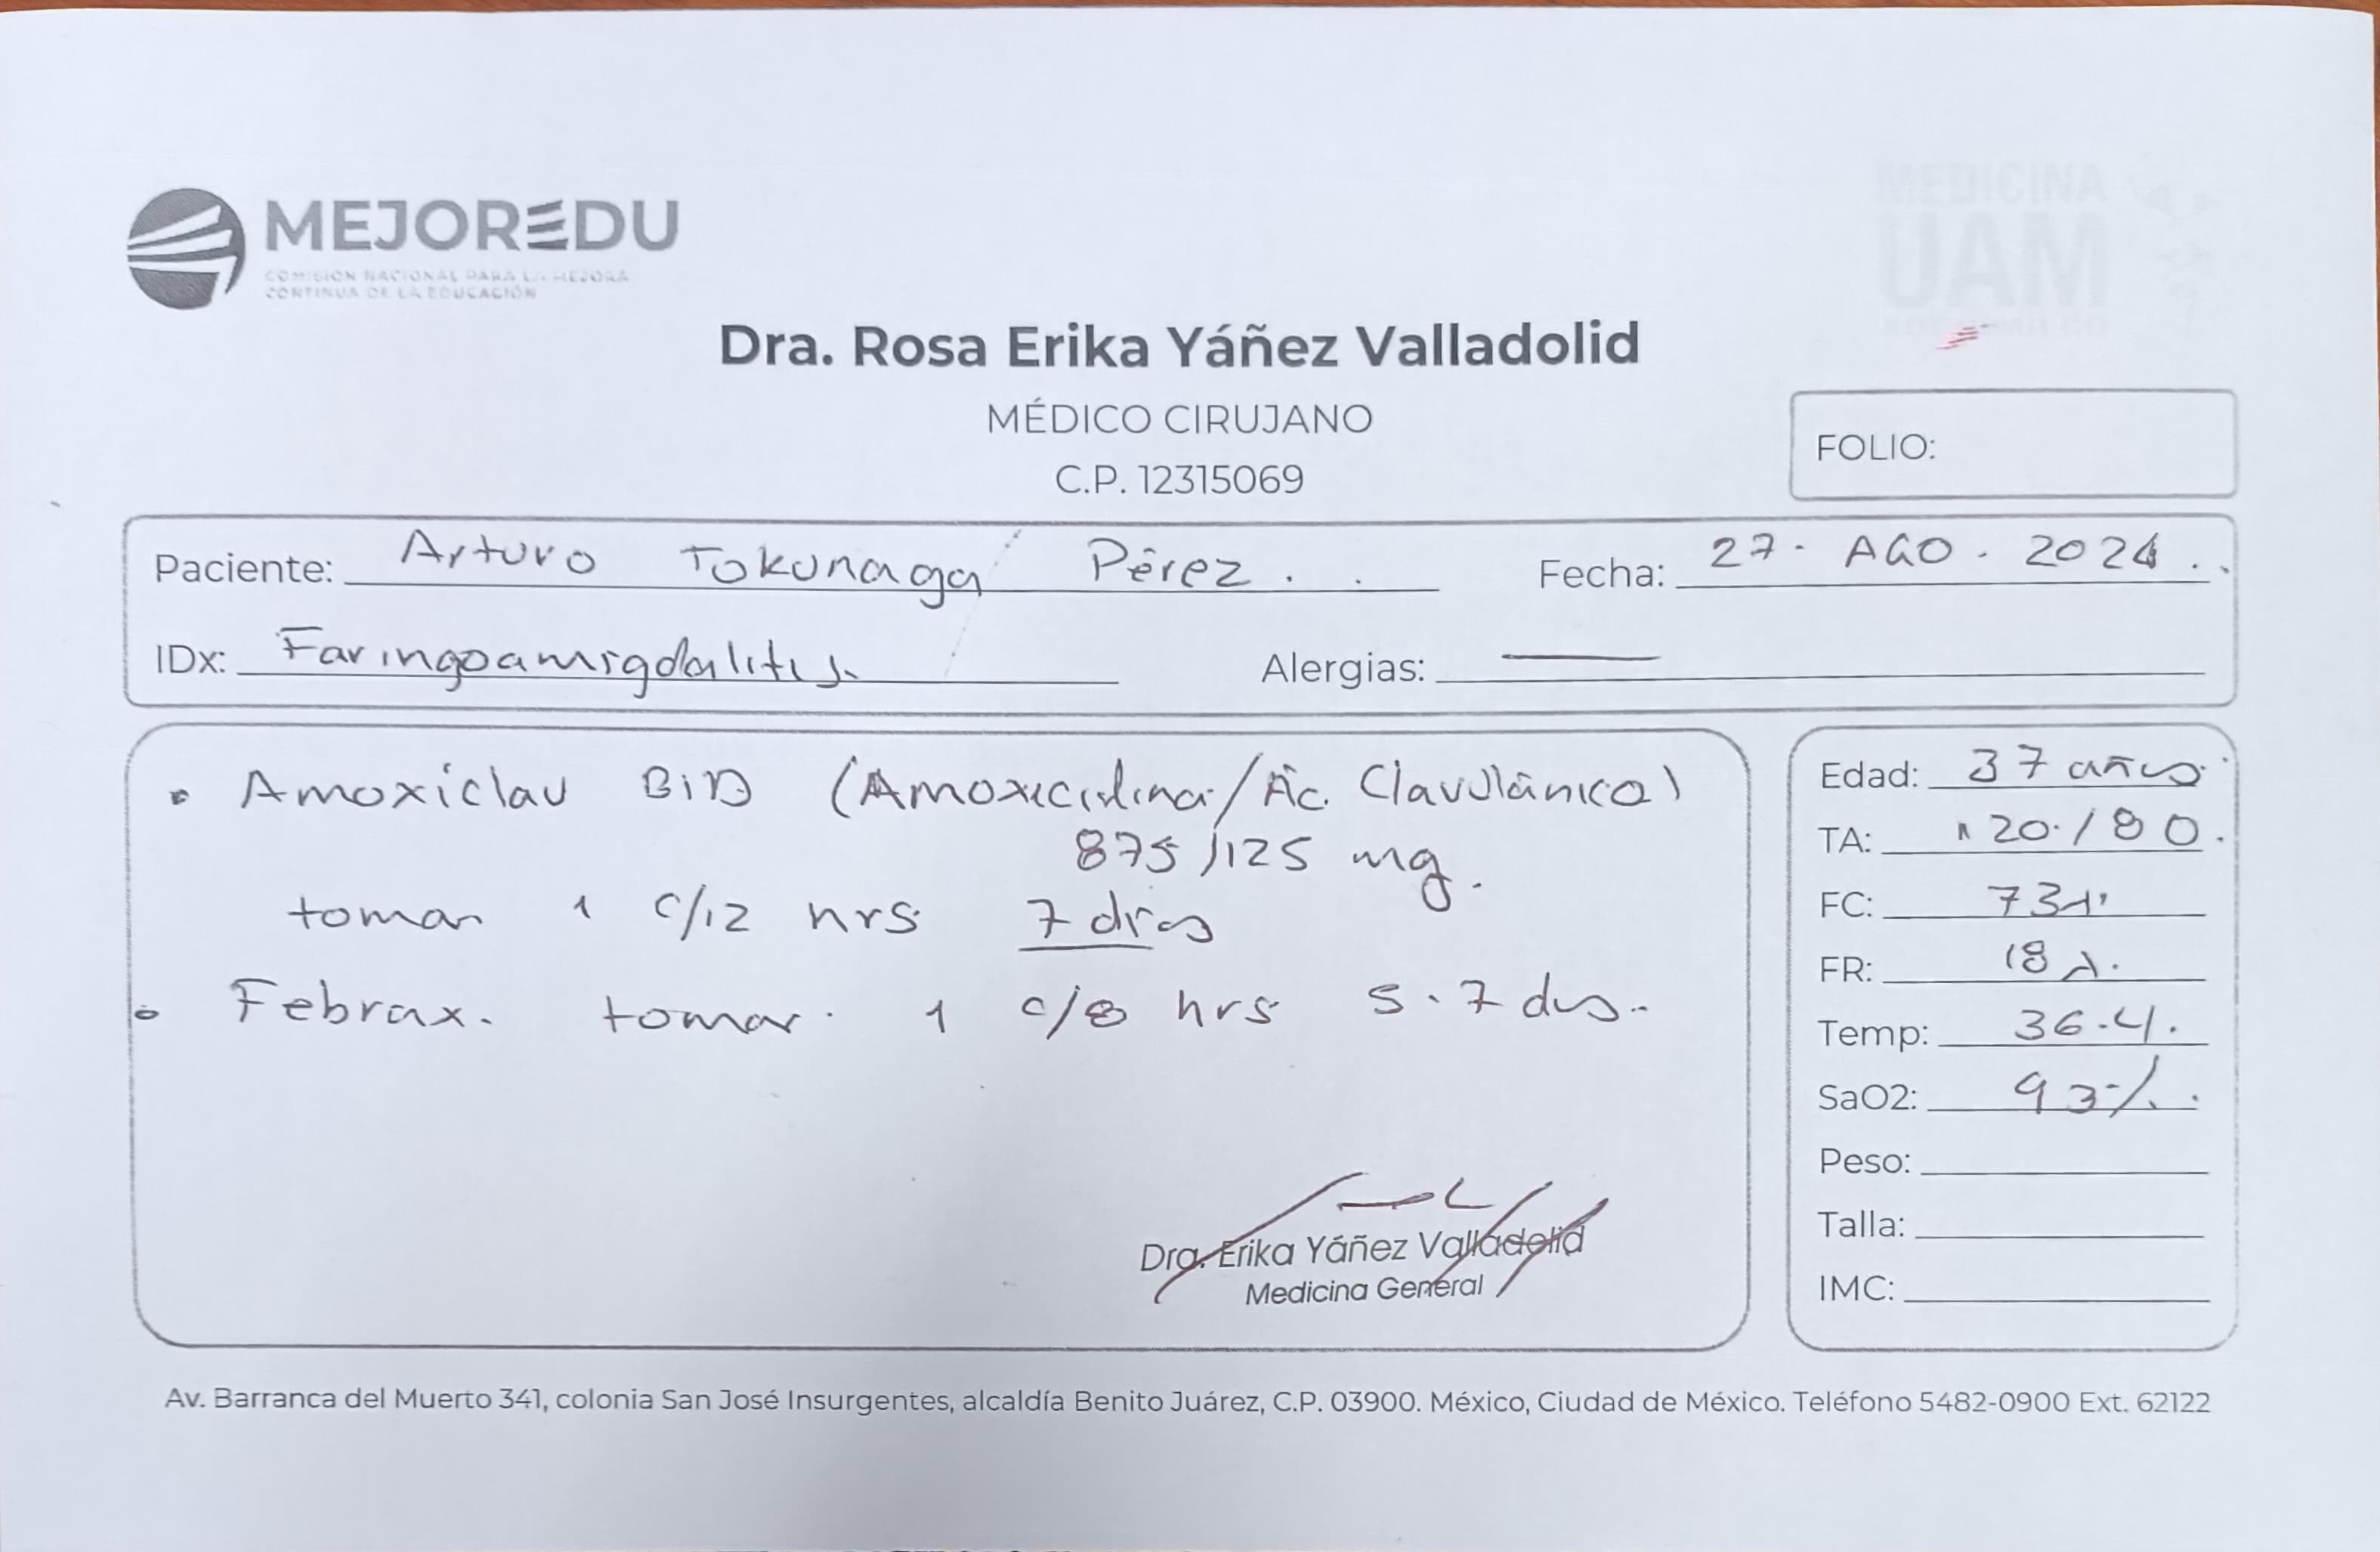 MEJOREDU
COMISIÓN NACIONAL PARA LA MEJORA
CONTINUA DE LA EDUCACIÓN
MEDICINA
UAM
Dra. Rosa Erika Yáñez Valladolid
MÉDICO CIRUJANO
C.P. 12315069
FOLIO:
Paciente: Arturo Tokunaga Pérez. Fecha: 27. AGO. 2024.
IDx: Faringoamigdalitis. Alergias: —
• Amoxiclav BID (Amoxicilina/Ác. Clavulánico)
875/125 mg.
tomar 1 c/12 hrs 7 días
• Febrax. tomar 1 c/8 hrs 5-7 días.
Edad: 37 años
TA: 120/80.
FC: 73
FR: 18
Temp: 36.4.
SaO2: 93%.
Peso:
Talla:
IMC:
Dra. Erika Yáñez Valladolid
Medicina General
Av. Barranca del Muerto 341, colonia San José Insurgentes, alcaldía Benito Juárez, C.P. 03900. México, Ciudad de México. Teléfono 5482-0900 Ext. 62122